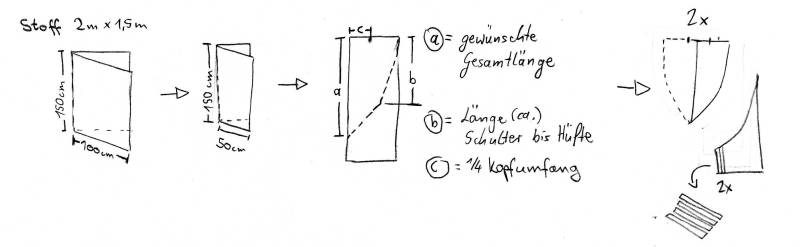 Stoff 2m x 1,5m
150cm
100cm
150cm
50cm
c
a
b
a = gewünschte
Gesamtlänge
b = Länge (ca.)
Schulter bis Hüfte
c = 1/4 Kopfumfang
2x
2x